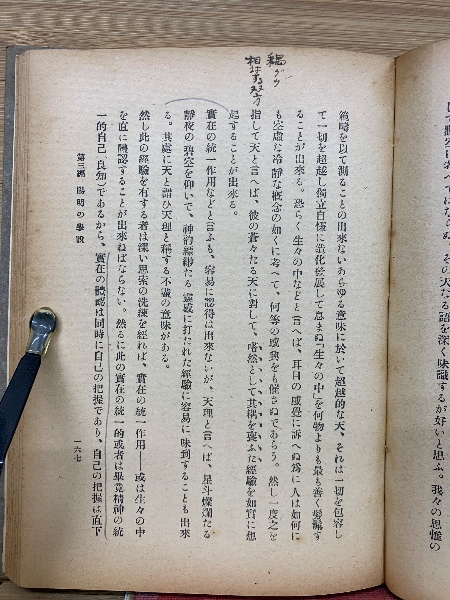 耦グウ
相対する双方
範疇を以て測ることの出來ないあらゆる意味に於いて超越的な天、それは一切を包容し
て一切を超越し獨立自恆に造化發展して息まぬ「生々の中」を何物よりも最も善く髣髴す
ることが出來る。恐らく生々の中などと言へば、耳目の感覺に訴へぬ爲に人は如何に
も空虚な冷靜な概念の如くに考へて、何等の感興をも催さぬであらう。然し一度之を
指して天と言へば、彼の蒼々たる天に對して、嗒然として其耦を喪ふた經驗を如實に想
起することが出來る。
實在の統一作用などと言ふも、容易に認得は出來ないが、天理と言へば、星斗燦爛たる
靜夜の碧空を仰いで、神韵縹緲たる靈感に打たれた經驗に容易に味到することも出來
る。其處に天と謂ひ天理と稱する不盡の意味がある。
然し此の經驗を有する者は深い思索の洗煉を經れば、實在の統一作用し、或は生々の中
を直に體認することが出來ねばならない。然るに此の實在の統一的或者は畢竟精神の統
一的自己（良知）であるから、實在の體認は同時に自己の把握であり、自己の把握は直下
第三編 陽明の學說
一六七
して虚空に考へてはならぬ。その天なる語を深く味識するが好いと思ふ。我々の思惟の